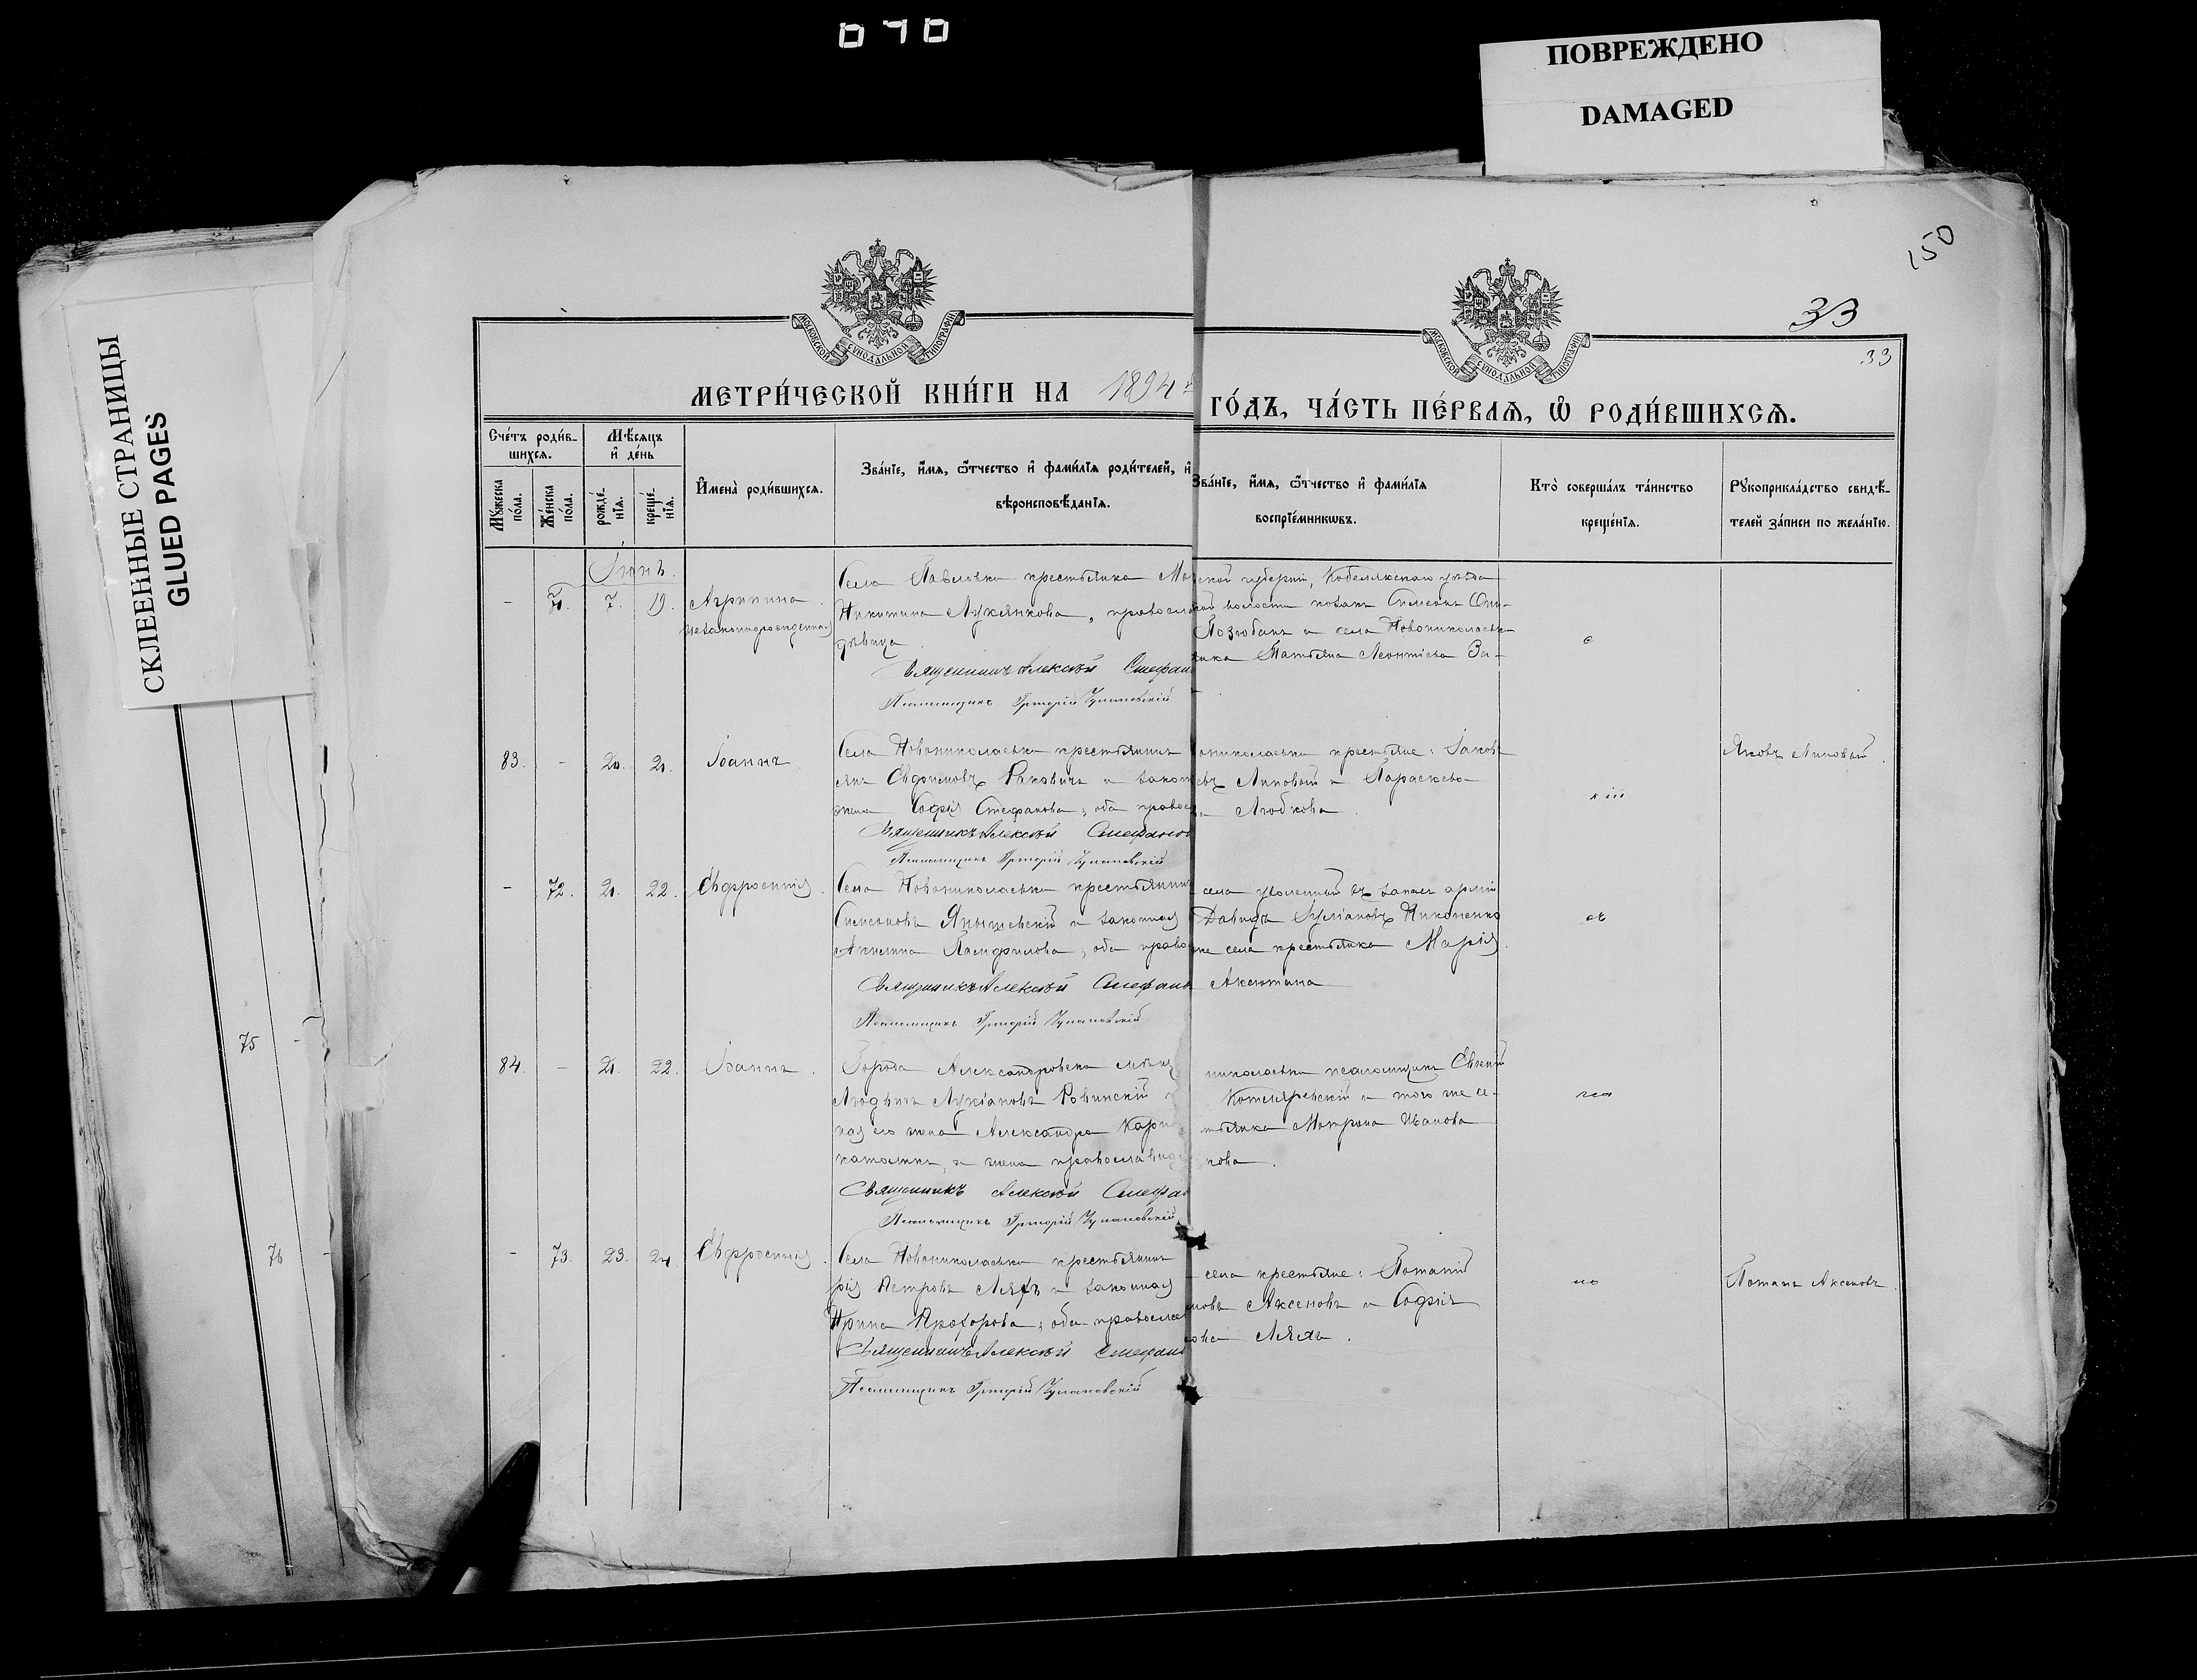 070
ПОВРЕЖДЕНО
DAMAGED
СКЛЕЕННЫЕ СТРАНИЦЫ
GLUED PAGES
150
33
33
МОСКОВСКОЙ СѴНОДАЛЬНОЙ ТИПОГРАФІИ
МОСКОВСКОЙ СѴНОДАЛЬНОЙ ТИПОГРАФІИ
МЕТРИ́ЧЕСКОЙ КНИ́ГИ НА 1894 й
ГО́ДЪ, ЧА́СТЬ ПЕ́РВАѦ, Ѡ҆ РОДИ́ВШИХСѦ.
Сче́тъ роди́в-
шихсѧ.
Мѣ́сѧцъ
и҆ де́нь
Мꙋ́жеска по́ла.
Же́нска по́ла.
рожде́-
нїѧ.
креще́-
нїѧ.
И҆мена̀ роди́вшихсѧ.
Зва́нїе, и҆́мѧ, ѻ҆́тчество и҆ фамѝлїѧ роди́телей, и҆
вѣроисповѣ́данїѧ.
Зва́нїе, и҆́мѧ, ѻ҆́тчество и҆ фамѝлїѧ
воспрїе́мникѡвъ.
Кто̀ соверша́лъ та́инство
креще́нїѧ.
Рꙋкоприкла́дство свидѣ́-
телей за́писи по жела́нїю.
Іюнь.
- 7. 19. Агрипина
незаконнорожденная
Села Павловки крестьянка
Никитина Лукянкова, правосла
дѣвица
Священникъ Алексѣй Стефан
Псаломщикъ Григорій
ской губерніи, Кобелякскаго уѣзда
волости козакъ Симеонъ
и села Новониколаевк
Татьяна Леонтіева За-
83. - 20. 21. Іоаннъ
Села Новониколаевки крестьянинъ
Евфимовъ Раковичъ и закон
жена Софія Стефанова, оба правос
Священникъ Алексѣй Стефанов
Псаломщикъ Григорій
ониколаевки крестьяне: Іаковъ
евъ Липовый и Параскева
Любкова.
Яковъ Липовый.
- 72. 21. 22. Евфросинія.
Села Новониколаевки крестьянинъ
Симеоновъ Янышевскій и законная
Акилина Памфилова, оба право
Священникъ Алексѣй Стефан
Псаломщикъ Григорій
села уволенный въ запасъ арміи
Давидъ Іуліановъ Никоненко
же села крестьянка Марія
Аксютина
75 -
84. - 21. 22. Іоаннъ.
Города Александровска мѣщ
Людвигъ Лукіановъ Ровинскій
ная его жена Александра Карп
католикъ, а жена православн
Священникъ Алексѣй Стефан
Псаломщикъ Григорій
николаевки псаломщикъ Евгеній
Котляревскій и того же се-
тьянка Матрона Иванова
кова.
76 -
- 73. 23. 24. Евфросинія.
Села Новониколаевки крестьянинъ
рій Петровъ Ляхъ и законная
Ирина Прохорова, оба православ
Священникъ Алексѣй Стефан
Псаломщикъ Григорій
села крестьяне: Потапій
новъ Аксеновъ и Софія
ова Ляхъ.
Потапъ Аксеновъ